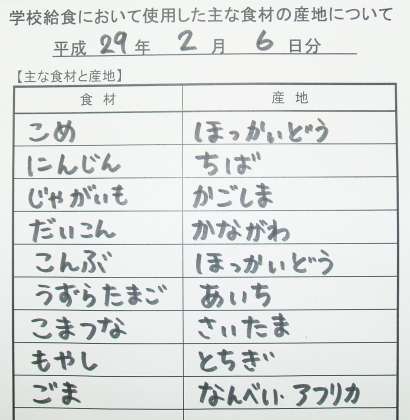 学校給食において使用した主な食材の産地について
平成 29 年 2 月 6 日分
【主な食材と産地】
食材 産地
こめ ほっかいどう
にんじん ちば
じゃがいも かごしま
だいこん かながわ
こんぶ ほっかいどう
うずらたまご あいち
こまつな さいたま
もやし とちぎ
ごま なんべい・アフリカ